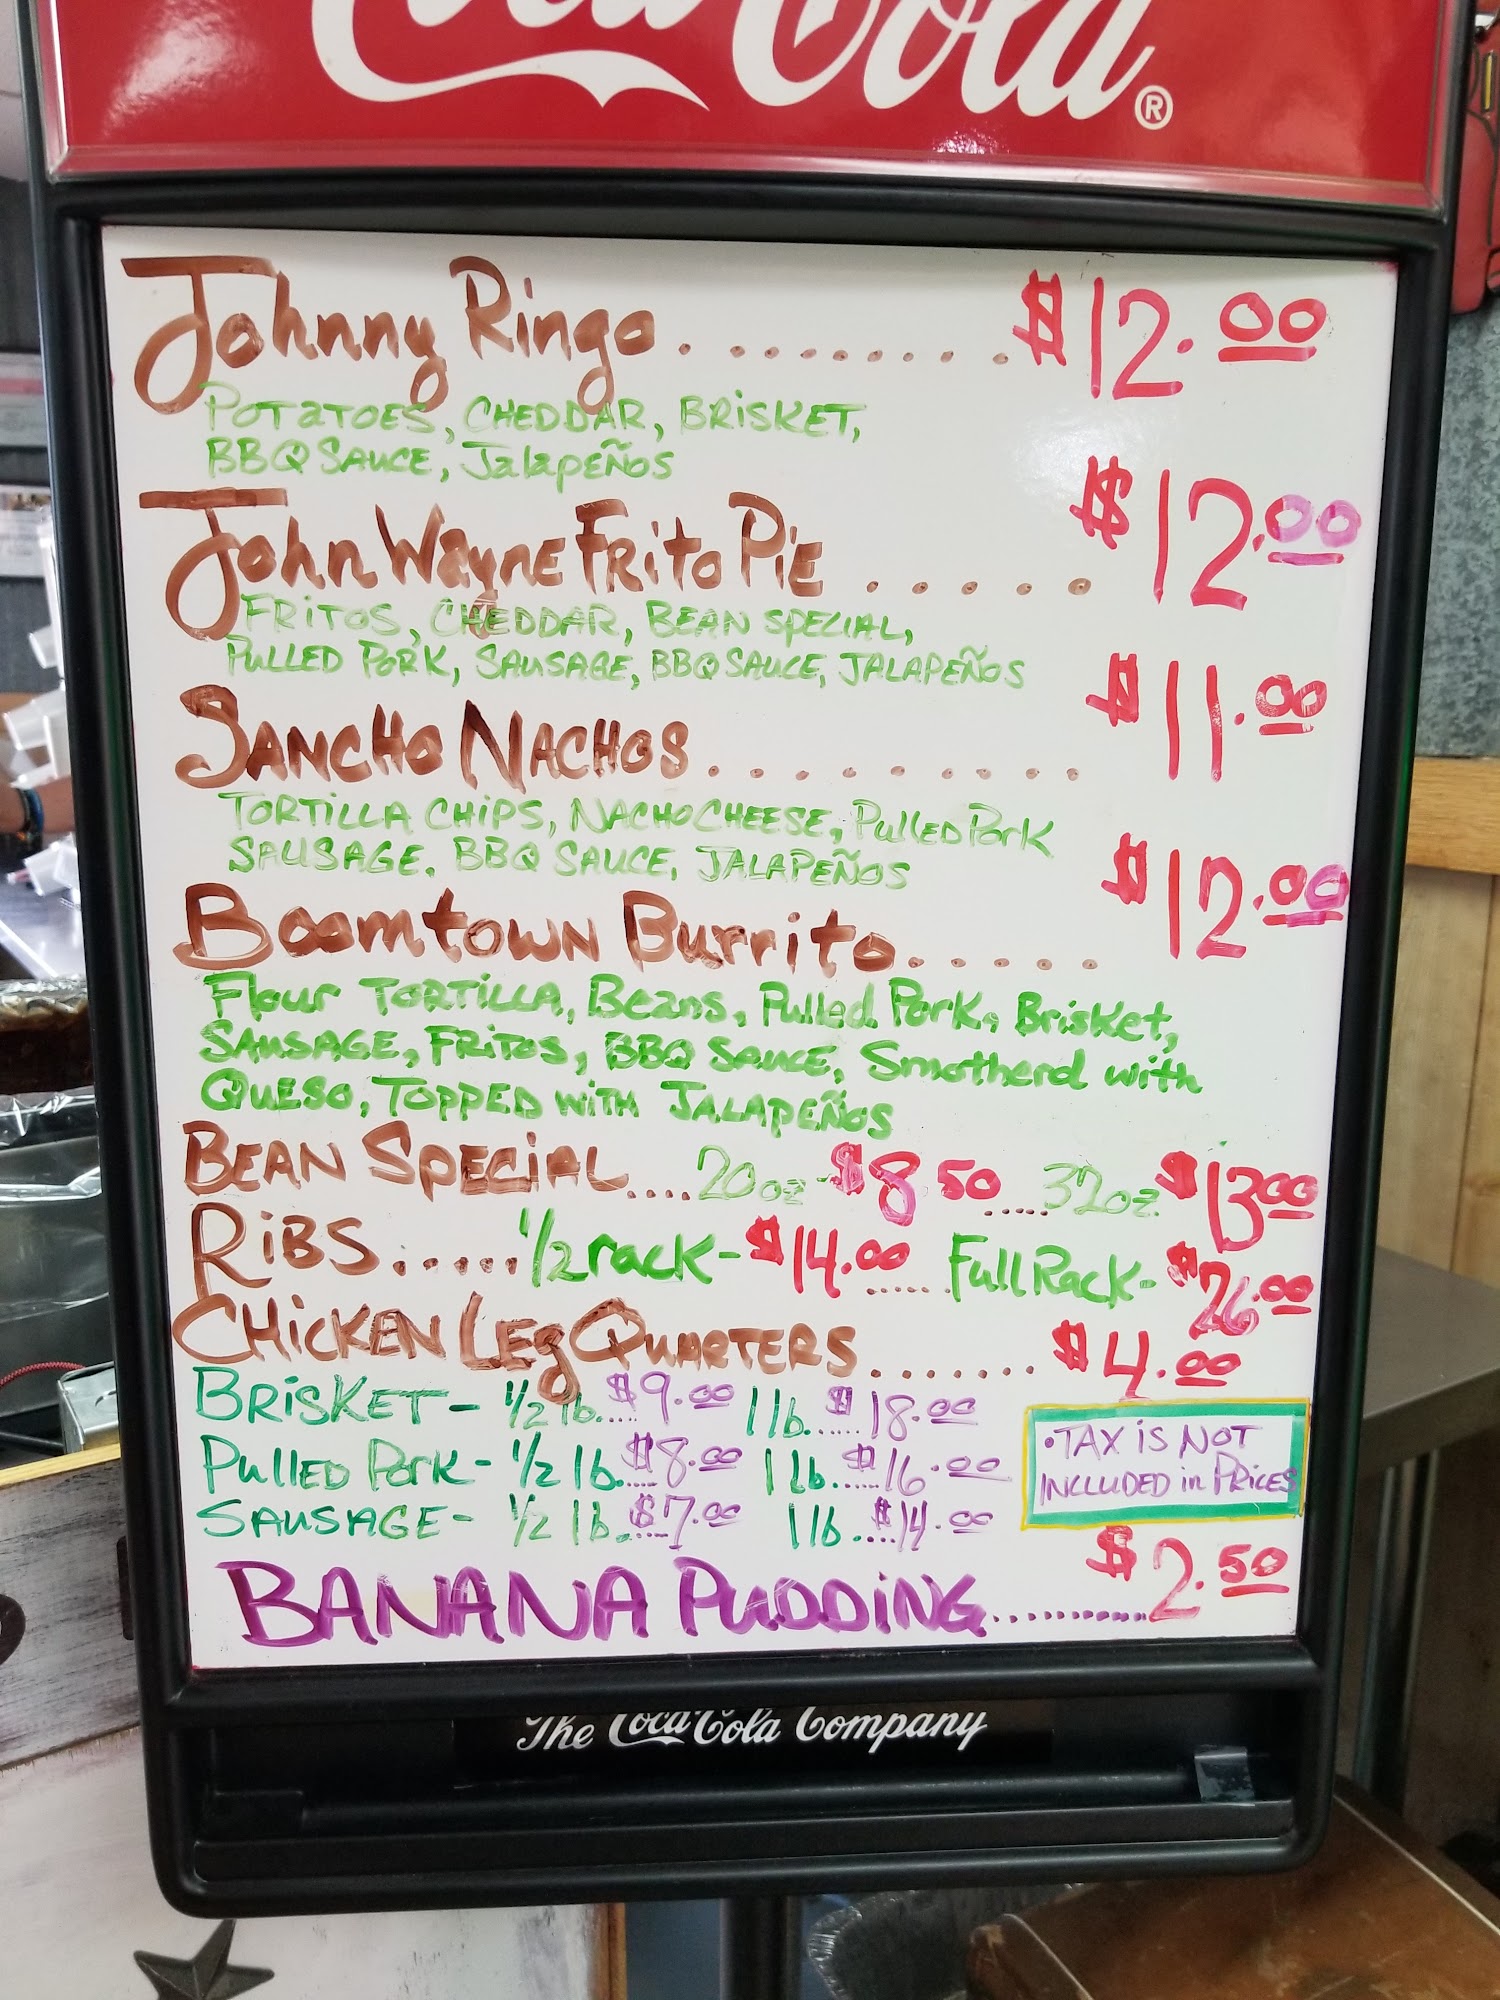 Coca-Cola®
Johnny Ringo.........$12.00
POTATOES, CHEDDAR, BRISKET,
BBQ SAUCE, JalapEÑOS
John WaynE FRito PiE.....$12.00
FRITOS, CHEDDAR, BEAN SPECIAL,
PULLED PORK, SAUSAGE, BBQ SAUCE, JALAPEÑOS
SANCHO NACHOS.........$11.00
TORTILLA CHIPS, NACHO CHEESE, PullED PORK
SAUSAGE. BBQ SAUCE, JALAPEÑOS
Boomtown Burrito.....$12.00
Flour TORTILLA, Beans, Pulled Pork, Brisket,
SAUSAGE, FRITOS, BBQ SAUCE, Smotherd with
QUESO, TOPPED with JALAPEÑOS
BEAN SPECIAL....20oz-$8.50.....32oz. $13.00
RiBS.....1/2 rack-$14.00......Full Rack-$26.00
CHICKEN LEg QUARTERS.......$4.00
BRISKET- 1/2 lb.....$9.00 1 lb......$18.00
PullED PORK- 1/2 lb.....$8.00 1 lb......$16.00
SAUSAGE- 1/2 lb.....$7.00 1 lb....$14.00
•TAX iS NOT
INCLUDED in PRiCES
BANANA PUDDING..........$2.50
The Coca-Cola Company